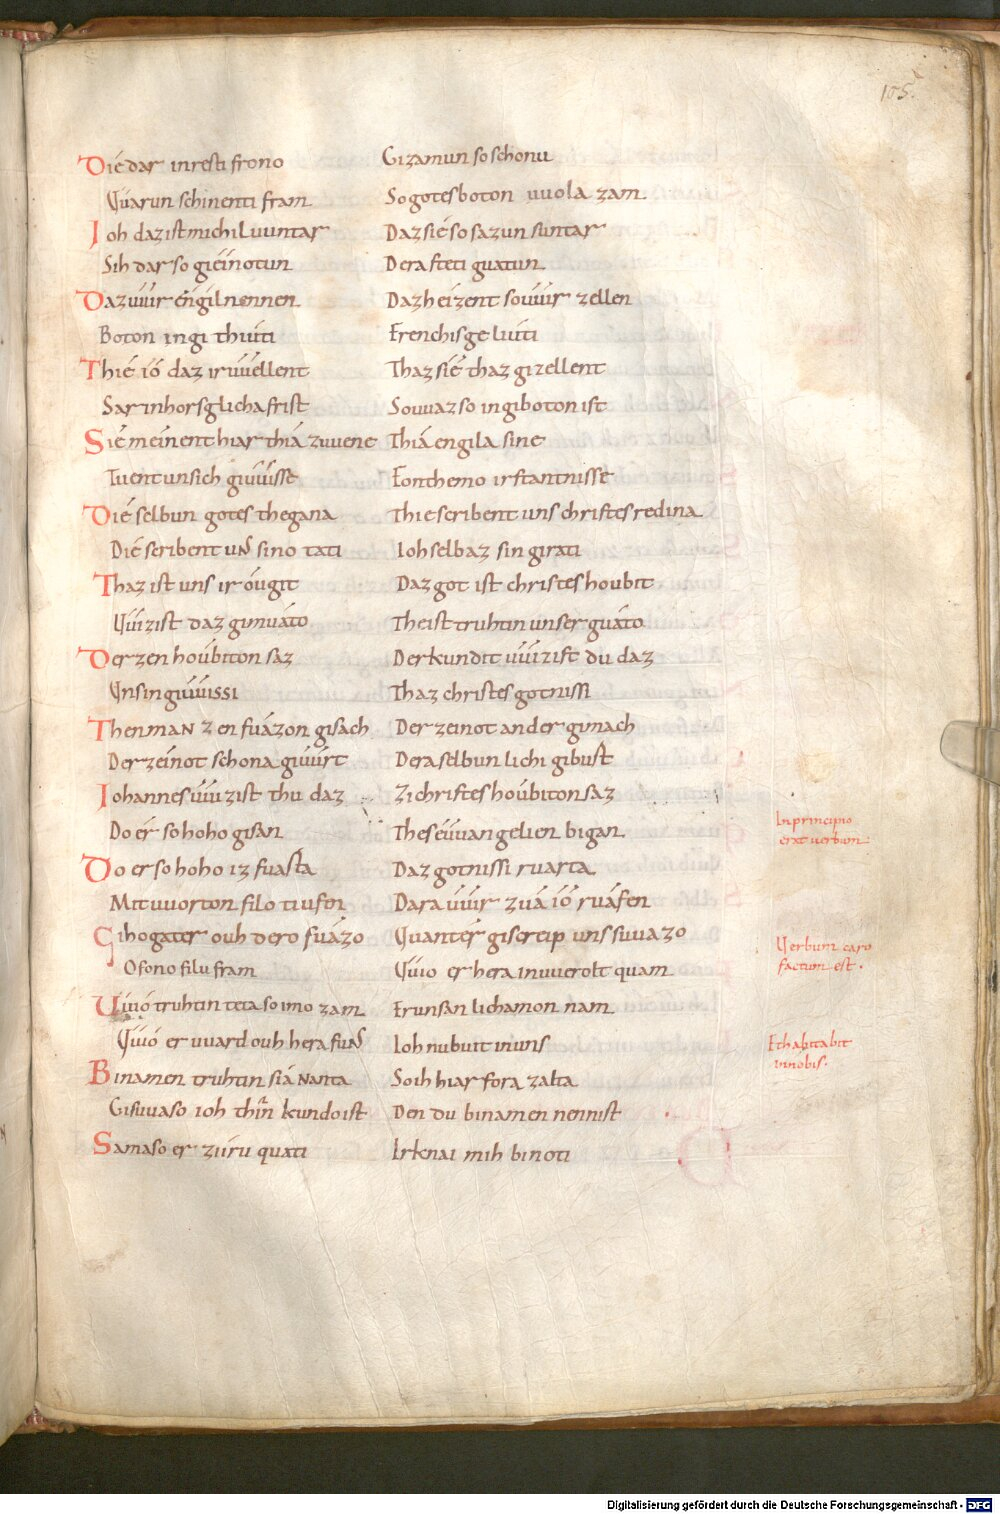 105.
Dié dar in resti frono Gizamun so schonu
Quarun schinenti fram So gotes boton uuola zam
Ioh daz ist michil uuntar Daz sié so sazun suntar
Sih dar so giéinotun Der afteti guatun
Daz uuir éngil nennen Daz heizent so uuir zellen
Boton in githiuti Frenchisge liuti
Thié ió daz iruuellent Thaz sié thaz gizellent
Sar in horsglicha frist So uuaz so in giboton ist
Sié meinent hiar thiá zuuene Thiá engila sine
Tuent unsich giuuisse Fon themo irstantnisse
Dié selbun gotes thegana Thie scribent uns christes redina
Dié scribent uns sino tati Ioh selbaz sin girati
Thaz ist uns iróugit Daz got ist christes houbit
Quizist daz gimuáto Theist truhtin unser guáto
Der zen hoúbiton saz Der kundit uuizist du daz
Unsin giuuissi Thaz christes gotnissi
Then man zen fuázon gisach Der zeinot ander gimach
Der zeinot schona giuurt Dera selbun lichi giburt
Iohannes uuizist thu daz Zi christes hoúbiton saz
Do ér so hoho gisan Thes éuuangelien bigan
In principio
erat uerbum
Do er so hoho iz fuasta Daz gotnissi ruarta
Mit uuorton filo tiufen Dara uuir zuá ió ruáfen
Gihogater ouh dero fuázo Quanter giscreip uns suuazo
Verbum caro
factum est.
Ofono filu fram Quio er hera in uuerolt quam
Uuió truhtin teta so imo zam Er unsan lichamon nam
Quió er uuard ouh hera funs Ioh nu buit in uns
Et habitabit
in nobis.
Bi namen truhtin siá nanta So ih hiar fora zalta
Gisuuaso ioh thir in kundo ist Den du bi namen nennist
Samaso er zi iru quati Irknai mih bi noti
Digitalisierung gefördert durch die Deutsche Forschungsgemeinschaft - DFG